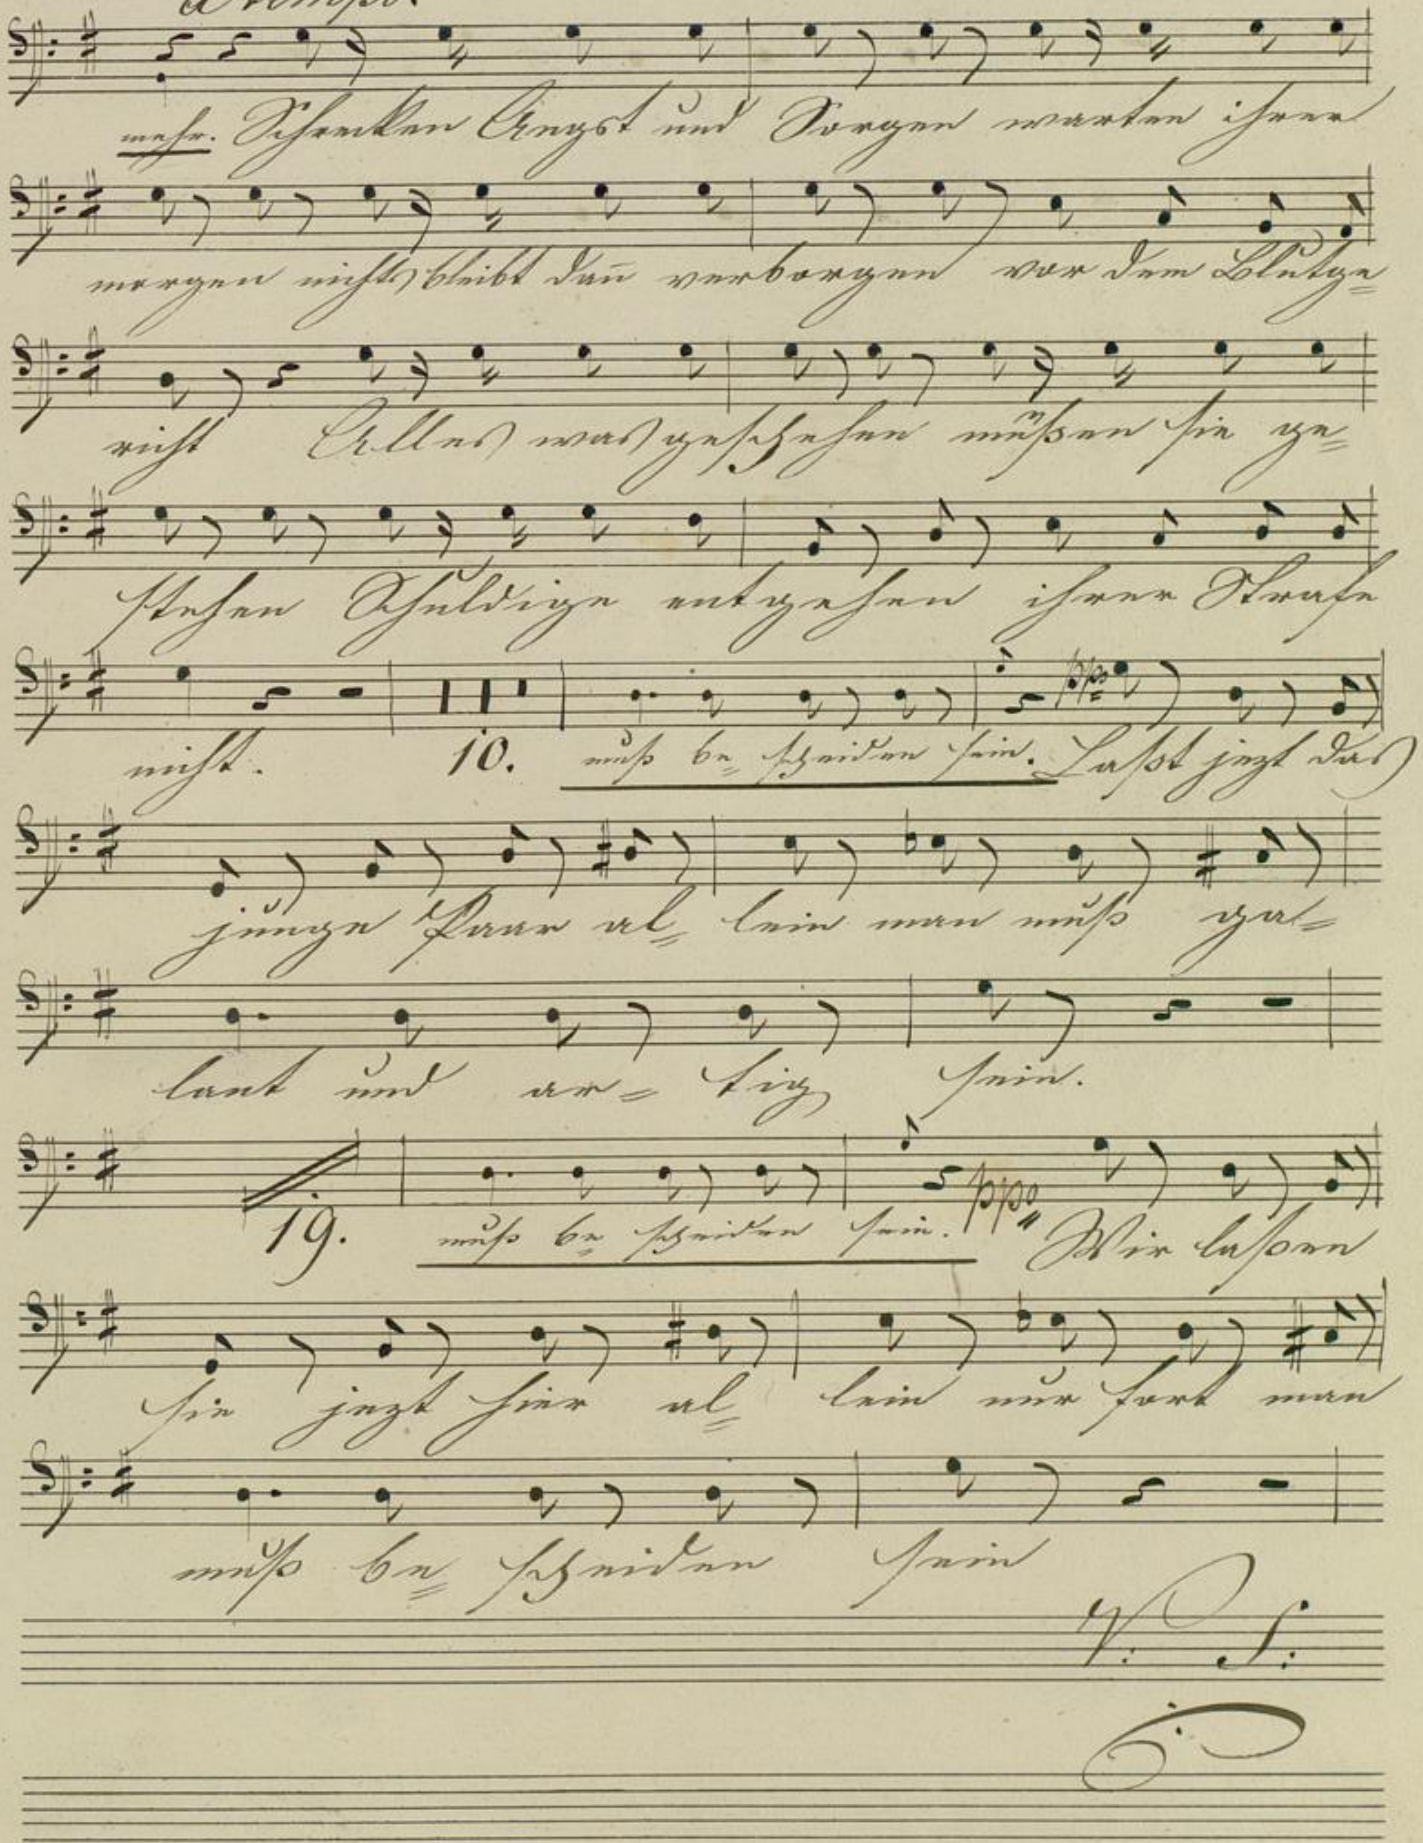 a tempo.
mehr. Schrecken Angst und Sorgen warten ihrer
morgen nichts bleibt dañ verborgen vor dem Blutge=
richt Alles was geschehen müßen sie ge=
stehen Schuldige entgehen ihrer Strafe
nicht. 10. muß be= scheiden sein. Laßt jezt das
pp
junge Paar al= lein man muß ga=
lant und ar= tig sein.
19. muß be= scheiden sein. ppo Wir laßen
sie jezt hier al= lein nur fort man
muß be= scheiden sein
V. S.